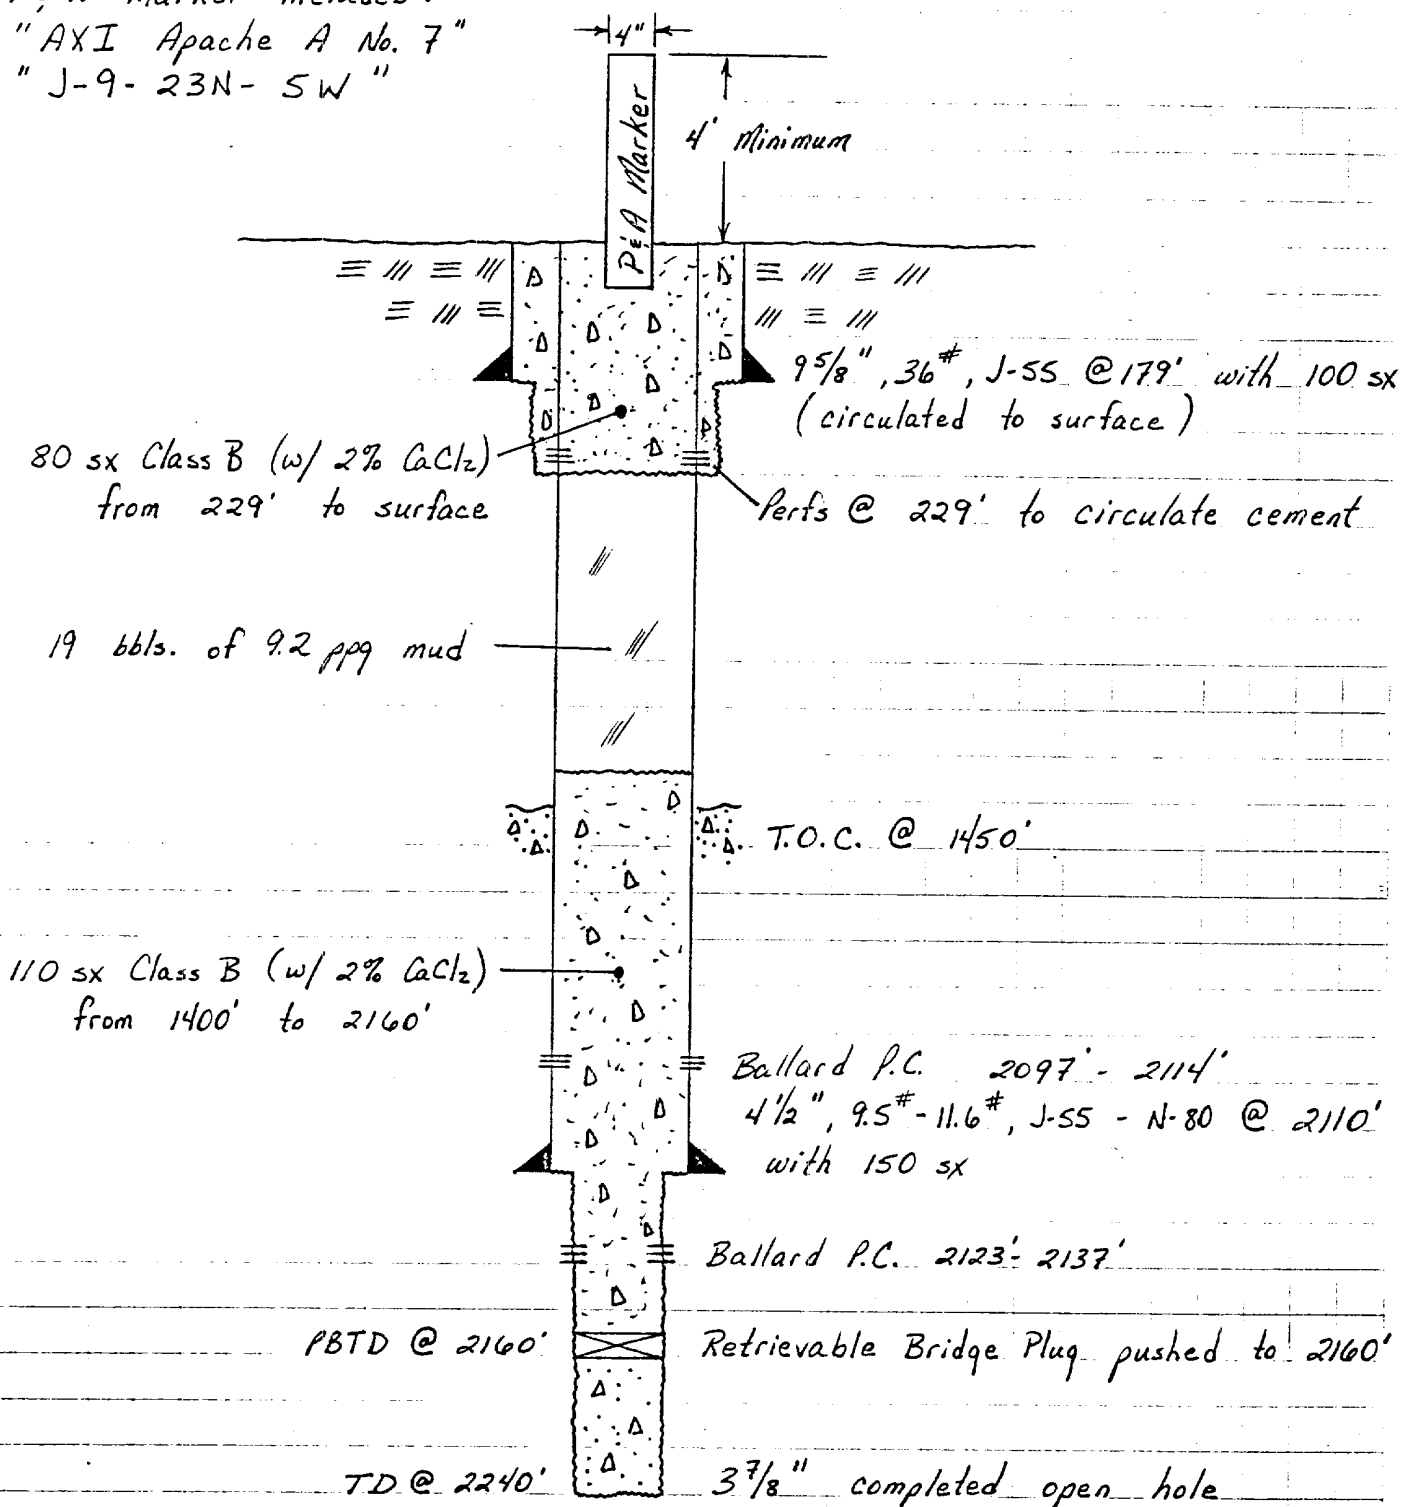 P&A Marker includes:
"AXI Apache A No. 7"
"J-9-23N-5W"
4"
4' Minimum
P&A Marker
9 5/8", 36#, J-55 @ 179' with 100 sx
(circulated to surface)
80 sx Class B (w/ 2% CaCl2)
from 229' to surface
Perfs @ 229' to circulate cement
19 bbls. of 9.2 ppg mud
T.O.C. @ 1450'
110 sx Class B (w/ 2% CaCl2)
from 1400' to 2160'
Ballard P.C. 2097' - 2114'
4 1/2", 9.5# - 11.6#, J-55 - N-80 @ 2110'
with 150 sx
Ballard P.C. 2123' - 2137'
PBTD @ 2160'
Retrievable Bridge Plug pushed to 2160'
TD @ 2240'
3 7/8" completed open hole